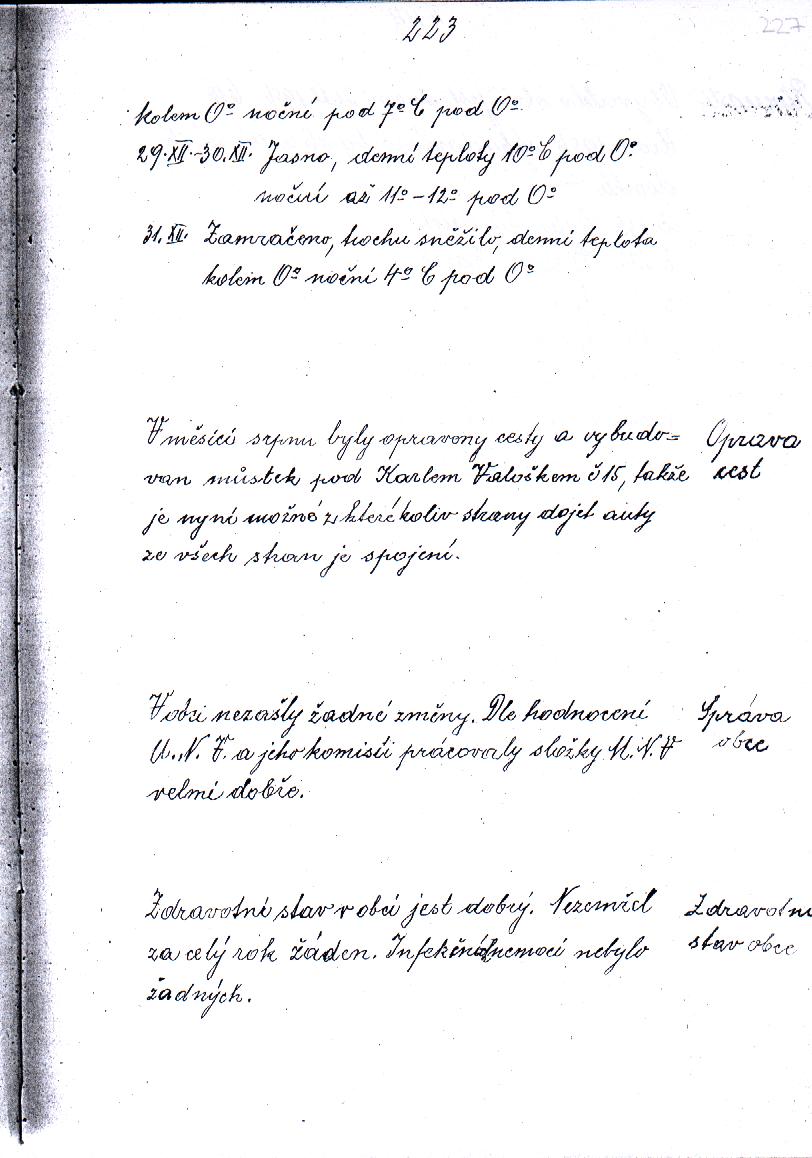 223
227
kolem 0º noční pod 7º C pod 0º.
29.XII.-30.XII. Jasno, denní teploty 10º C pod 0º
noční až 11º-12º pod 0º
31. XII. Zamračeno, trochu sněžilo, denní teplota
kolem 0º noční 4º C pod 0º
V měsíci srpnu byly opravony cesty a vybudo=
van můstek pod Karlem Valoškem č 15, takže
je nyní možné z kterékoliv strany dojet auty
ze všech stran je spojení.
Oprava
cest
V obci nezašly žádné změny. Dle hodnocení
M.N.V. a jeho komisií prácovaly složky M.N.V
velmi dobře.
Správa
obce
Zdravotní stav v obci jest dobrý. Nezemřel
za celý rok žáden. Infekční nemocí nebylo
žadných.
Zdravotní
stav obce